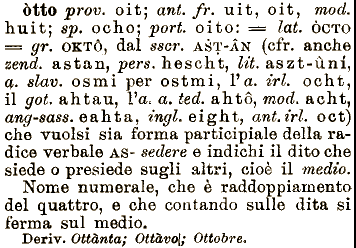 òtto prov. oit; ant. fr. uit, oit, mod.
huit; sp. ocho; port. oito: = lat. ÒCTO
= gr. OKTÔ, dal sscr. AŠT-ÂN (cfr. anche
zend. astan, pers. hescht, lit. aszt-ùní,
a. slav. osmi per ostmi, l'a. irl. ocht,
il got. ahtau, l'a. a. ted. ahtô, mod. acht,
ang-sass. eahta, ingl. eight, ant. irl. oct)
che vuolsi sia forma participiale della ra-
dice verbale AS- sedere e indichi il dito che
siede o presiede sugli altri, cioè il medio.
Nome numerale, che è raddoppiamento
del quattro, e che contando sulle dita si
ferma sul medio.
Deriv. Ottànta; Ottàvo; Ottobre.